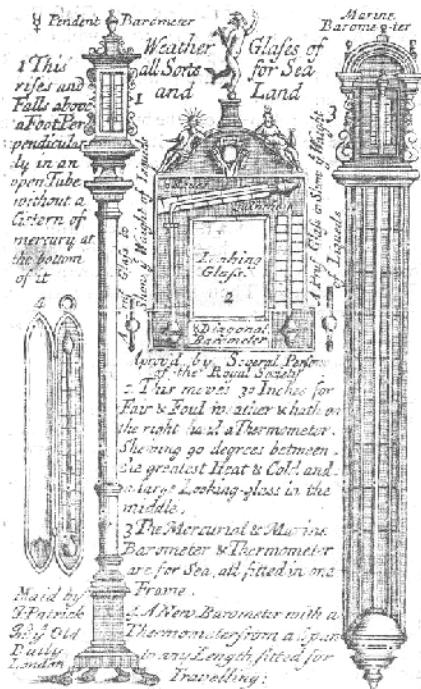 ye Pendent Barometer
Weather Glases of
all Sorts for Sea
and Land
Marine
Barometer
1 This
rises and
Falls above
a Foot Per
pendicular
ly in an
open Tube
without a
Cistern of
mercury at
the bottom
of it
1
A Pruf Glass to
Show ye Waight of Liquids
Looking
Glass
2
ye Diagonal
Barometer
3
A Pruf Glass to Show ye Waight
of Liquids
4
Aprov'd by Several Persons
of the Royal Society
2 This moves 30 Inches for
Fair & Foul weather & hath on
the right hand a Thermometer.
Shewing 90 degrees between
the greatest Heat & Cold and
a large Looking-glass in the
middle.
3 The Mercurial & Marine
Barometer & Thermometer
are for Sea, all fitted in one
Frame.
4 A New Barometer with a
Thermometer from a Span
to any Length fitted for
Travelling:
Maid by
J Patrick
in ye Old
Baily
London